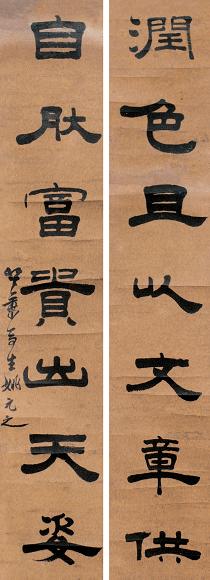 潤色且以文章供
自肰富貴出天姿
竹葉亭生姚元之